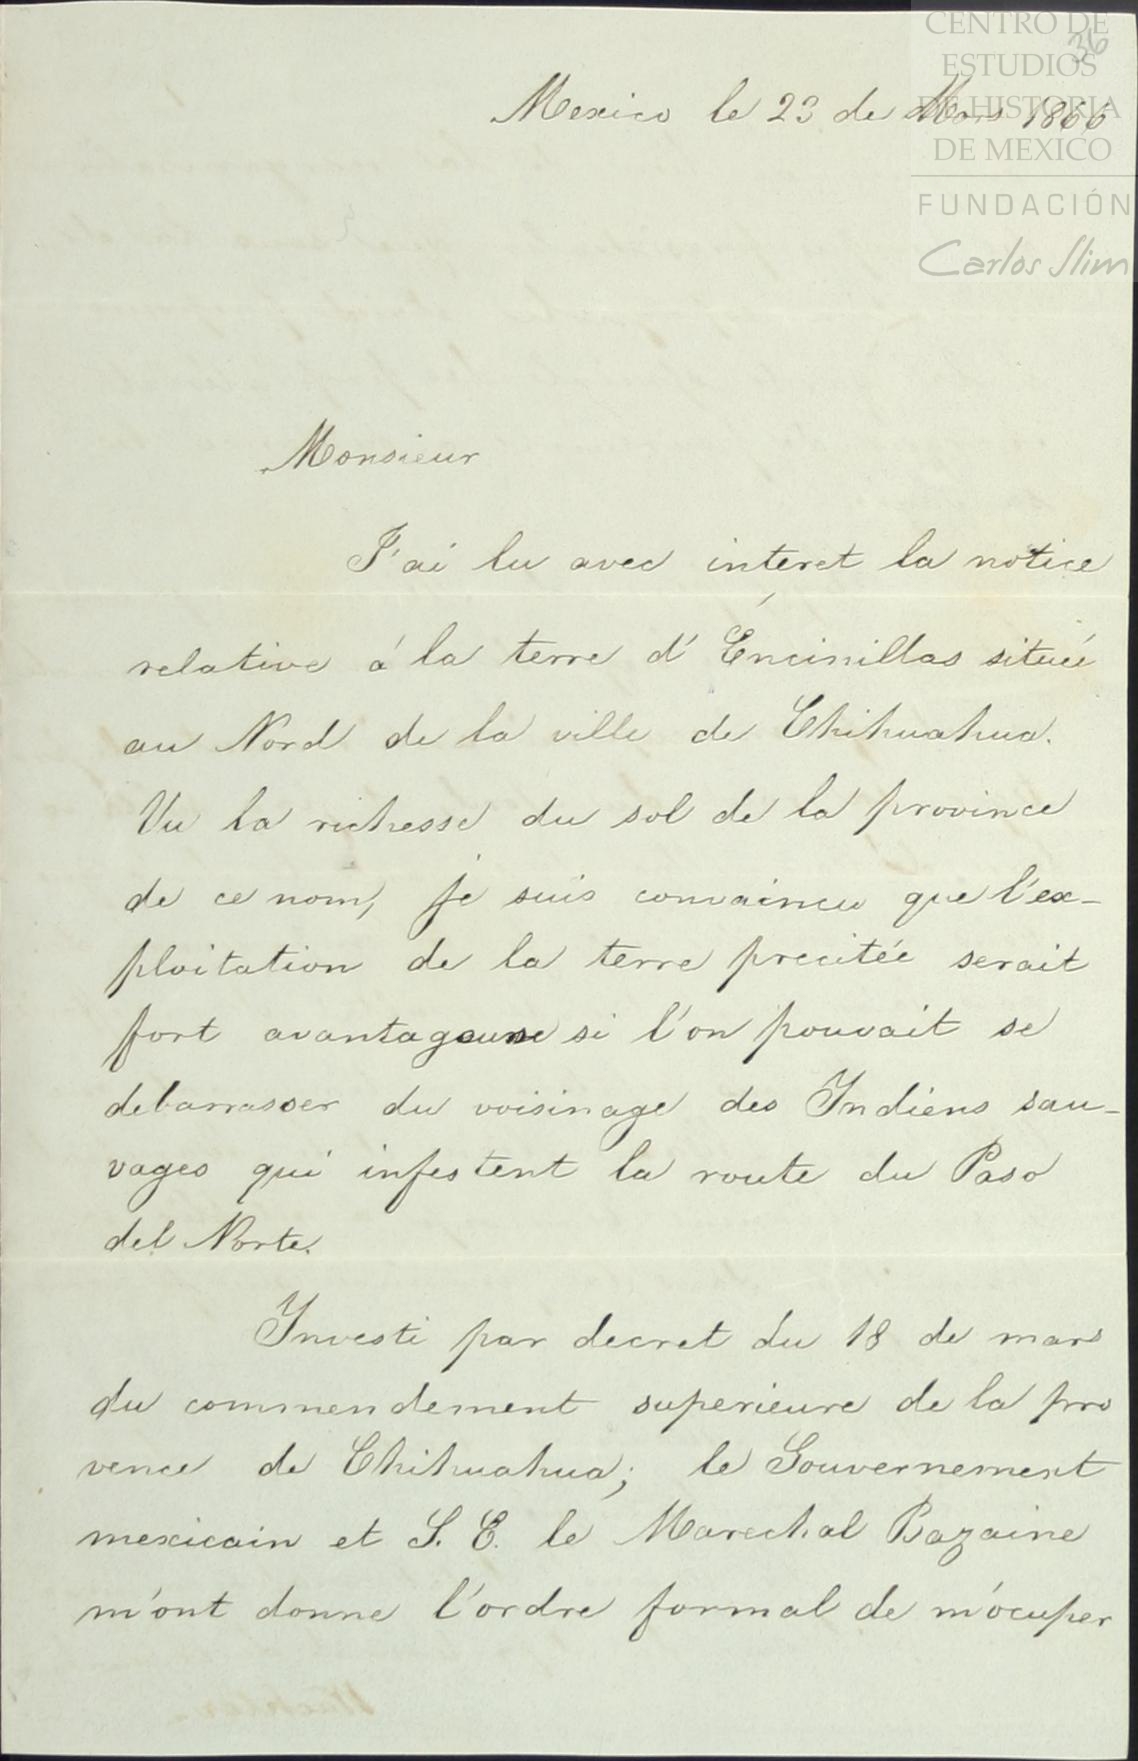 CENTRO DE
ESTUDIOS
DE HISTORIA
DE MEXICO
FUNDACIÓN
Carlos Slim
36
Mexico le 23 de Mars 1866
Monsieur
J'ai lu avec interet la notice
relative á la terre d'Encinillas situeé
au Nord de la ville de Chihuahua.
Vu la richesse du sol de la province
de ce nom, je suis convaincu que l'ex-
ploitation de la terre precitée serait
fort avantageuse si l'on pouvait se
debarrasser du voisinage des Indiens sau-
vages qui infestent la route du Paso
del Norte.
Investi par decret du 18 de mars
du commendement superieure de la pro
vence de Chihuahua; le Gouvernement
mexicain et S. E. le Marechal Bazaine
m'ont donne l'ordre formal de m'ocuper